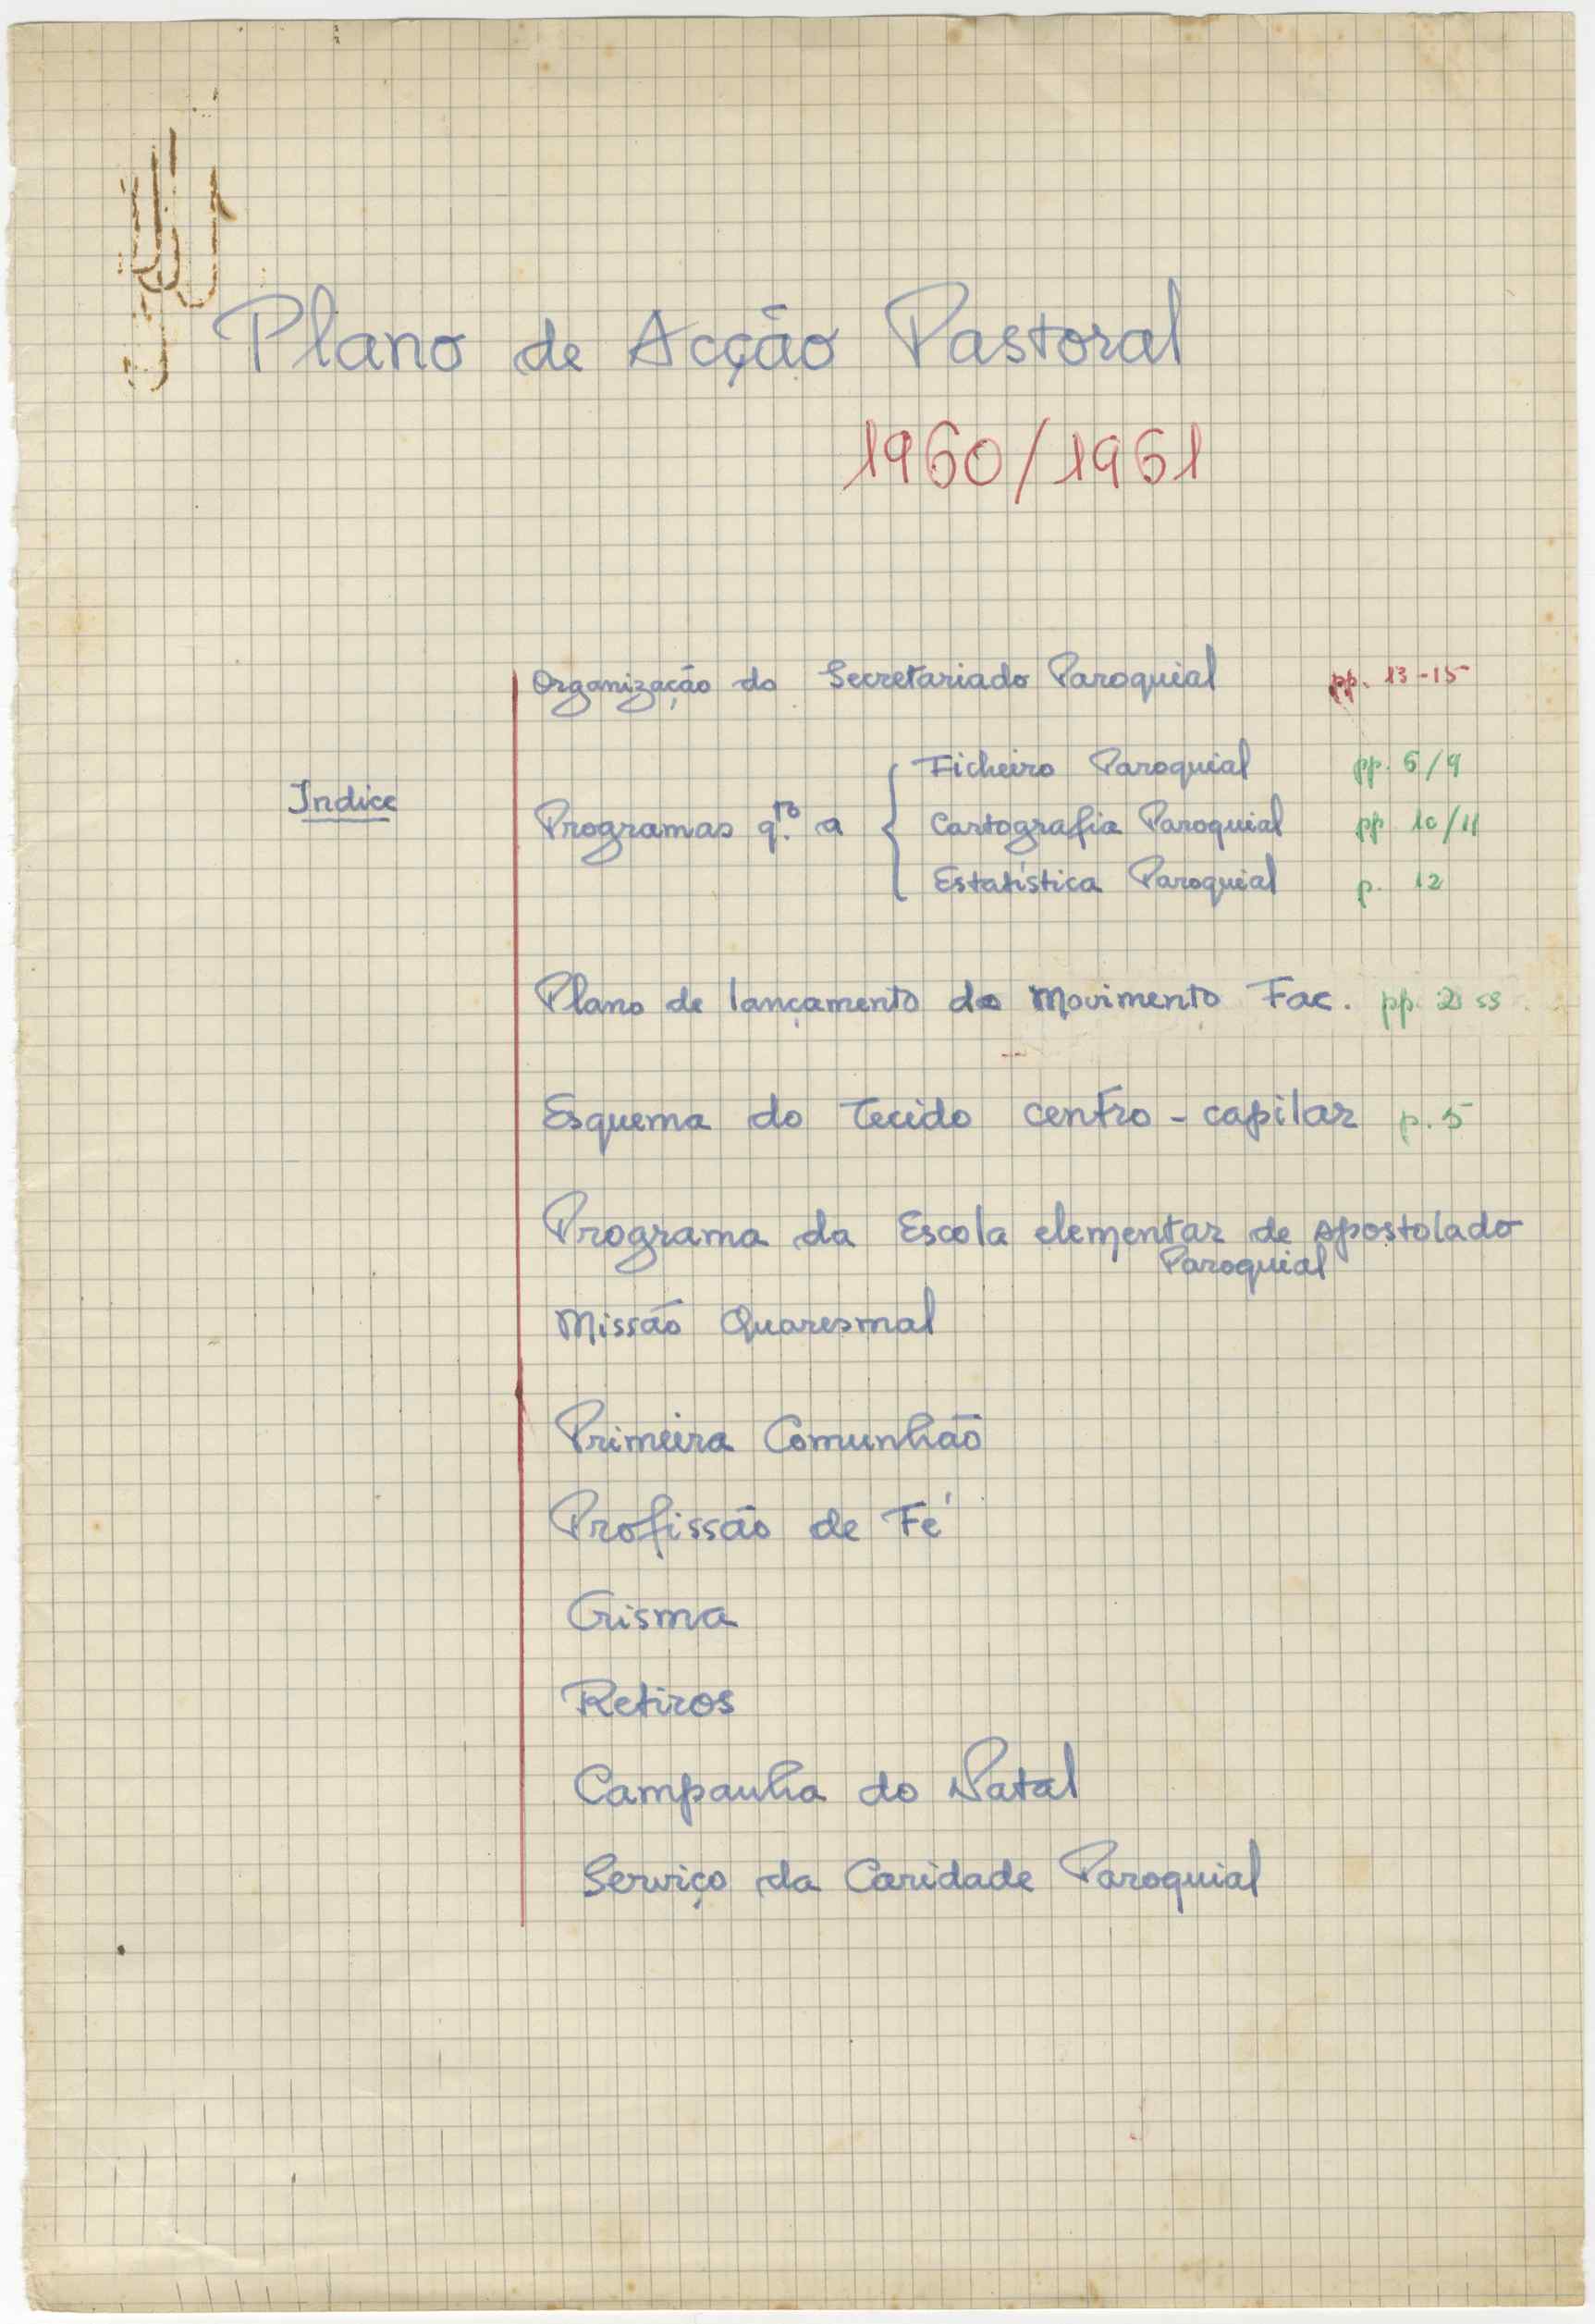 Plano de Acção Pastoral
1960/1961
Organização do Secretariado Paroquial pp. 13-15
Indice
Programas q.to a
Ficheiro Paroquial pp. 6/9
Cartografia Paroquial pp 10/11
Estatística Paroquial p. 12
Plano de lançamento do Movimento Fac. pp. 2 ss
Esquema do Tecido centro-capilar p. 5
Programa da Escola elementar de Apostolado
Paroquial
Missão Quaresmal
Primeira Comunhão
Profissão de Fé
Crisma
Retiros
Campanha do Natal
Serviço da Caridade Paroquial